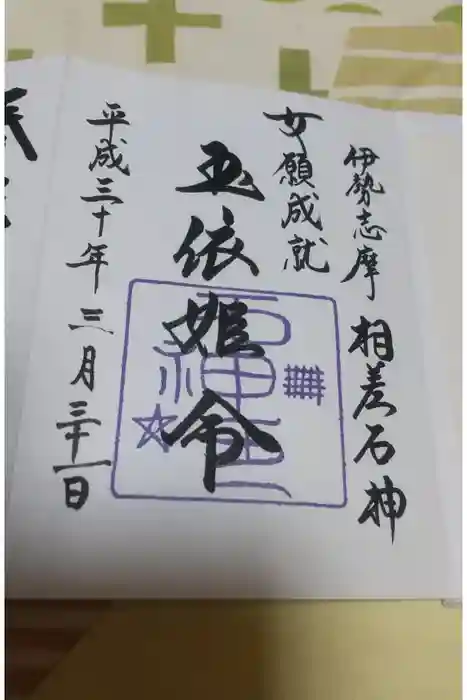 伊勢志摩 相差石神
女願成就
玉依姫命
平成三十年 三月三十一日